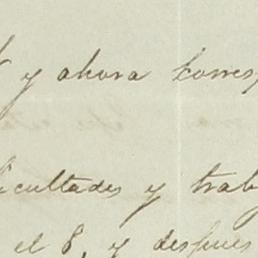 y ahora corres
icultades y trab
el 8, y despues